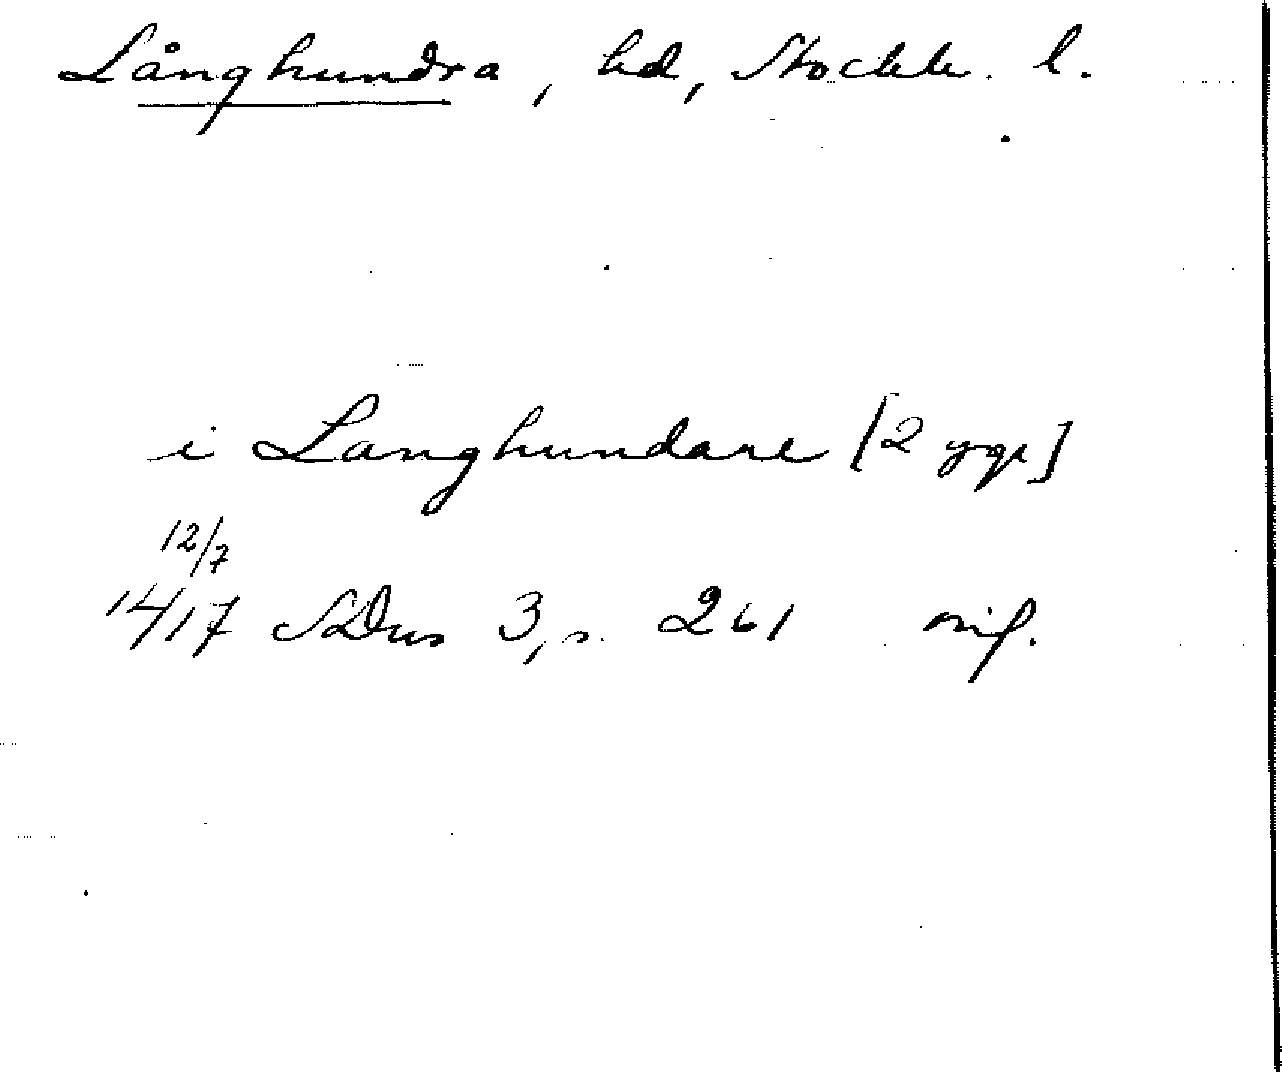 Långhundra, hd, Stockh. l.
i Langhundare [2 ggr]
12/7
1417 SDns 3, s. 261 orig.